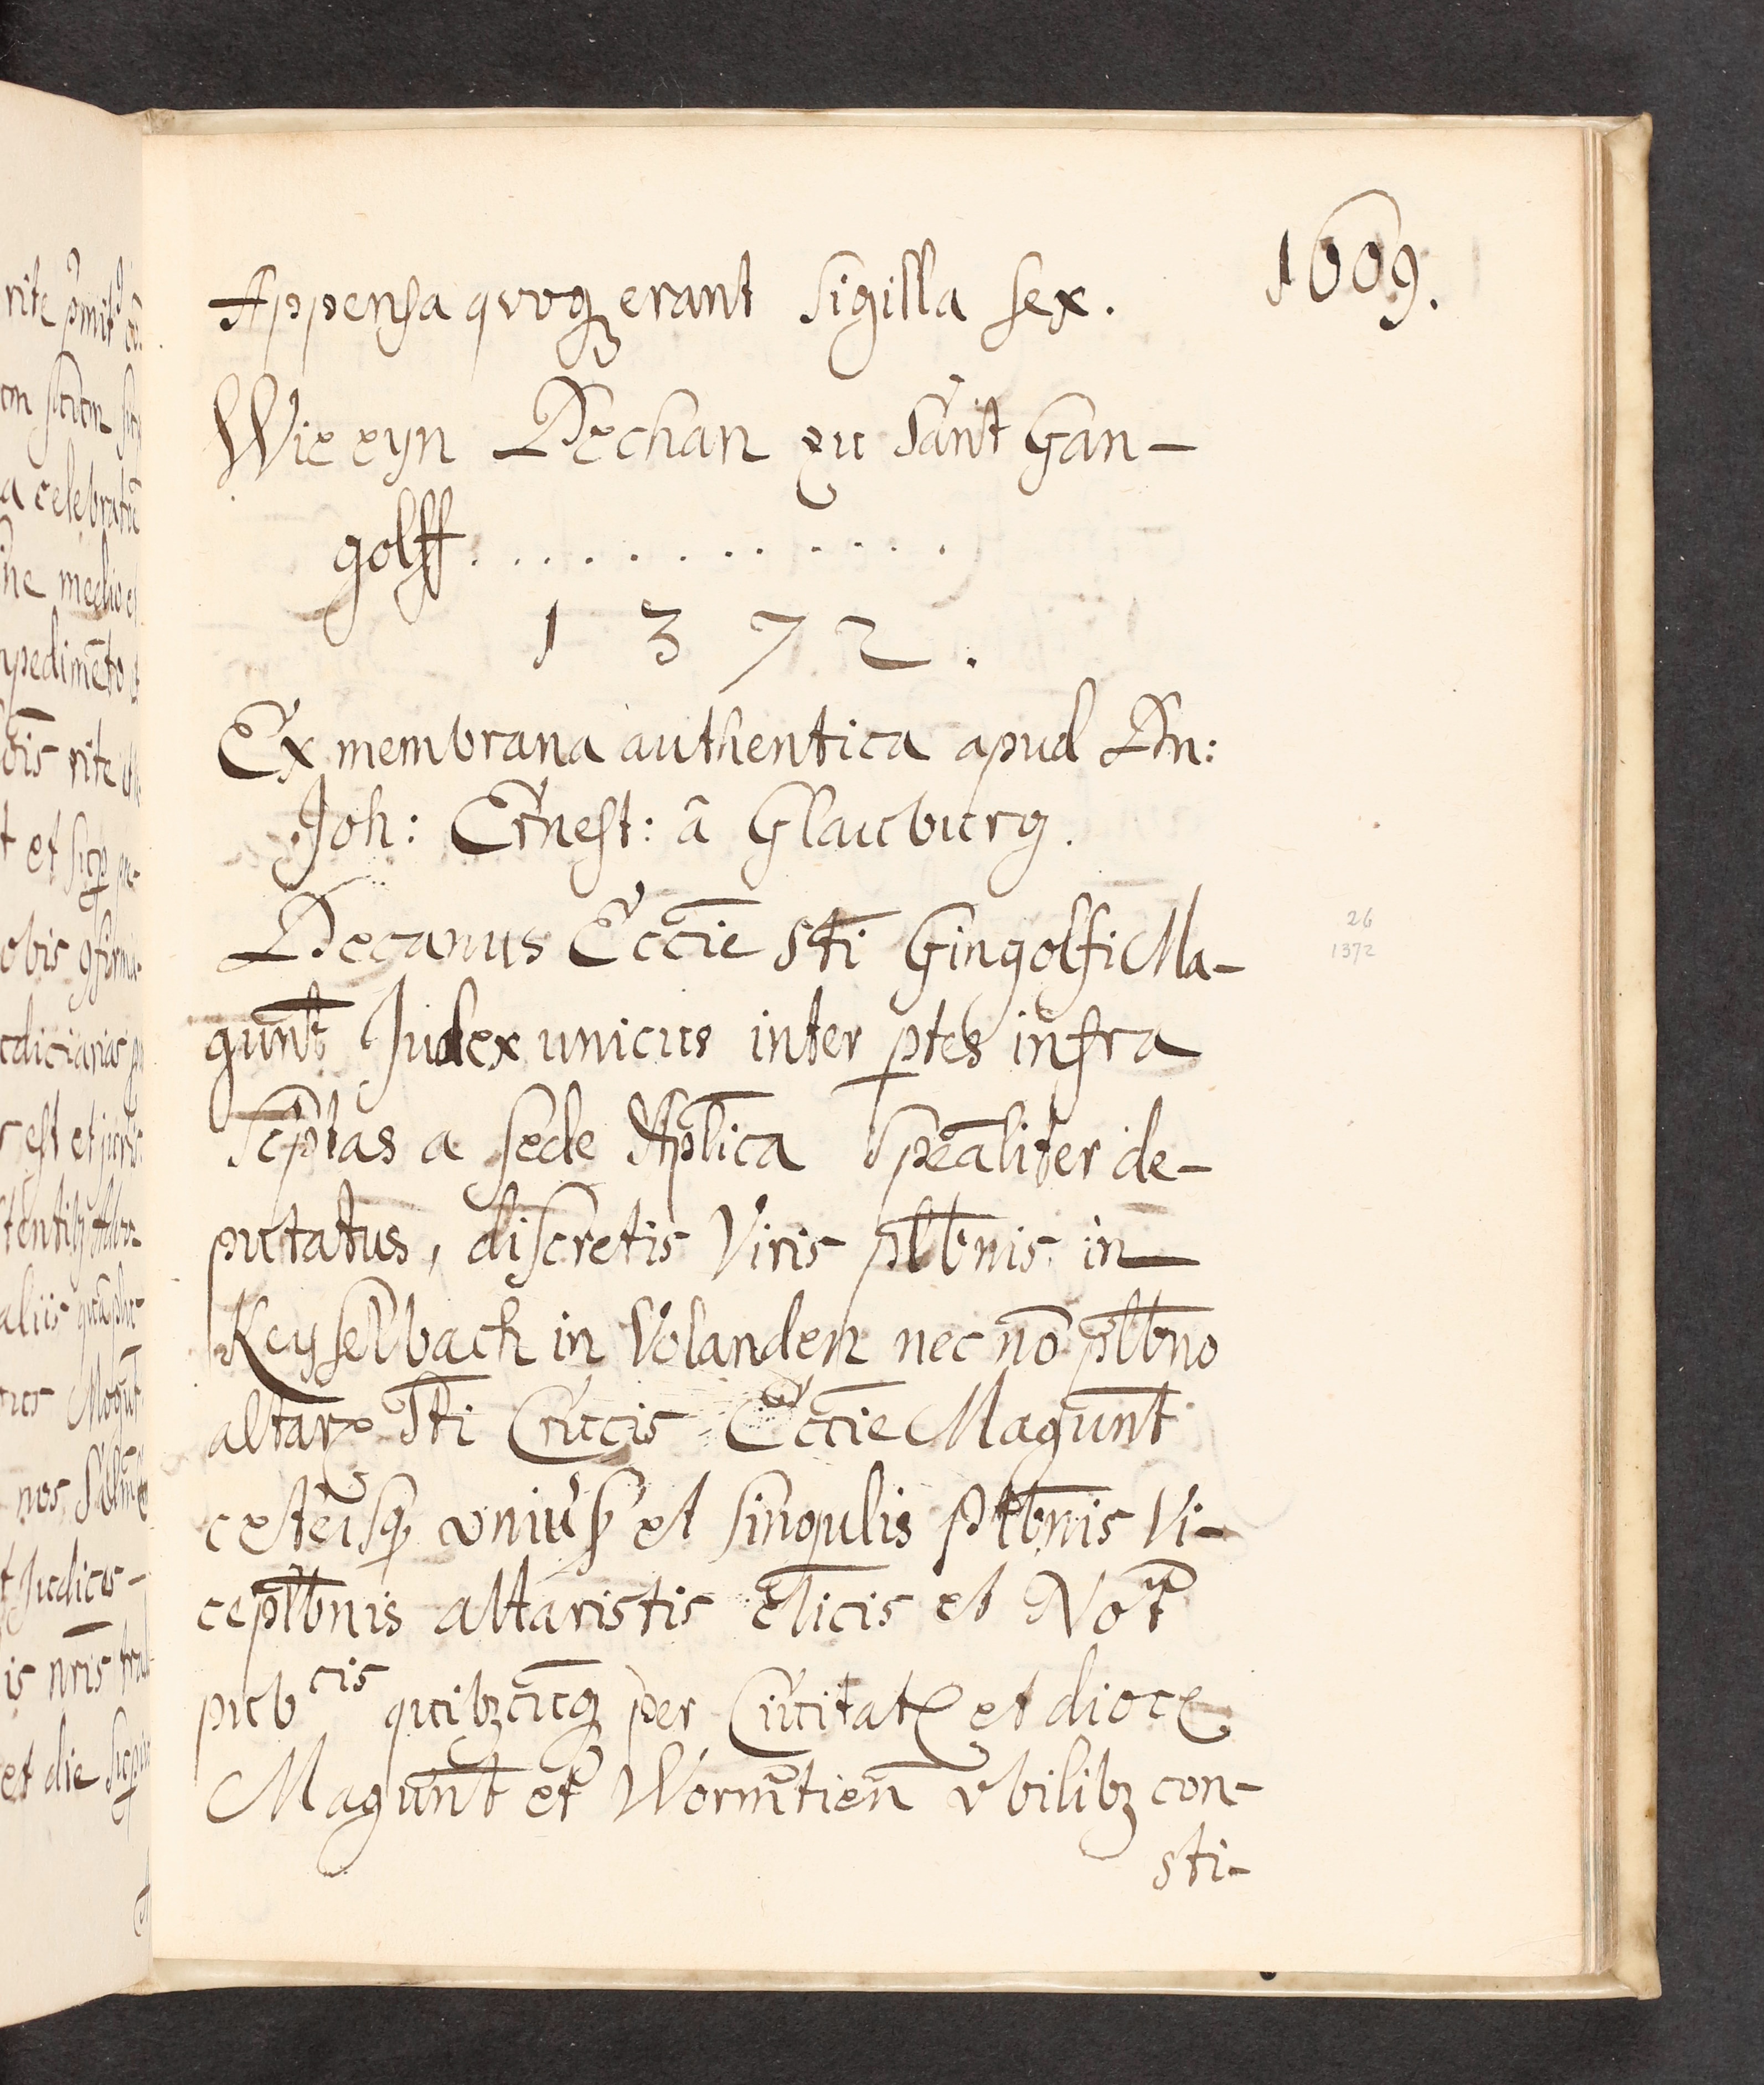 1609.
Appensa quoqꝫ erant Sigilla sex.
Wie eyn Dechan zu Sant Gan-
golff. . . . . . . . . . .
1372.
Ex membrana authentica apud Dn:
Joh: Ernest: ā Glauburg.
Decanus Eccīe Sti Gingolfi Ma-
gunt̄ Judex unicus inter ptes infra
scp̄tas a sede Apl̄ica Speal̄iter de-
putatus, discretis Viris pl̄bnis in
Keyselbach in Volanden nec nō pl̄bno
altarꝭ Sti Crucis Eccīe Magunt̄
ceteisqꝫ univ̓sꝭ et singulis Pl̄bnis Vi-
cepl̄bnis altaristis cl̄icis et Not̄
pub cis quibꝫcūcqꝫ per Ciuitatꝭ et diocꝭ
Magunt̄ et Worm̄tien̄ vbilibꝫ con-
sti-
26
1372
rite
celebratiō
medio
pedimēto
rite
et
obis
dicianas
est et juris
aliis
Mogūt
nos
Judices-
is nr̄is
et die